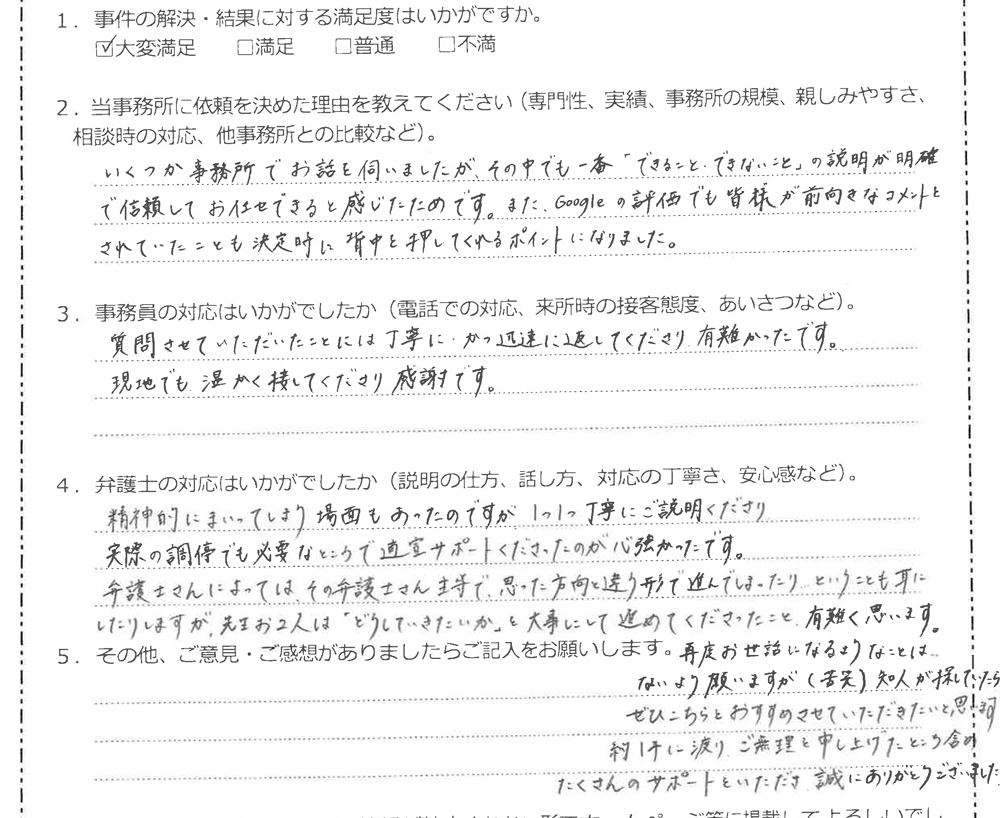 1．事件の解決・結果に対する満足度はいかがですか。
☑大変満足 □満足 □普通 □不満
2．当事務所に依頼を決めた理由を教えてください（専門性、実績、事務所の規模、親しみやすさ、
相談時の対応、他事務所との比較など）。
いくつか事務所でお話を伺いましたが、その中でも一番「できること・できないこと」の説明が明確
で信頼してお任せできると感じたためです。また、Googleの評価でも皆様が前向きなコメントを
されていたことも決定時に背中を押してくれるポイントになりました。
3．事務員の対応はいかがでしたか（電話での対応、来所時の接客態度、あいさつなど）。
質問させていただいたことには丁寧に・かつ迅速に返してくださり有難かったです。
現地でも温かく接してくださり感謝です。
4．弁護士の対応はいかがでしたか（説明の仕方、話し方、対応の丁寧さ、安心感など）。
精神的にまいってしまう場面もあったのですが、1つ1つ丁寧にご説明くださり
実際の調停でも必要なところで適宜サポートくださったのが心強かったです。
弁護士さんによってはその弁護士さん主導で、思った方向と違う形で進んでしまったり、ということも耳に
したりしますが、先生お2人は「どうしていきたいか」を大事にして進めてくださったこと、有難く思います。
5．その他、ご意見・ご感想がありましたらご記入をお願いします。再度お世話になるようなことは
ないよう願いますが（苦笑）知人が探していたら
ぜひこちらをおすすめさせていただきたいと思います
約1年に渡り、ご無理を申し上げたところ含め
たくさんのサポートをいただき、誠にありがとうございました